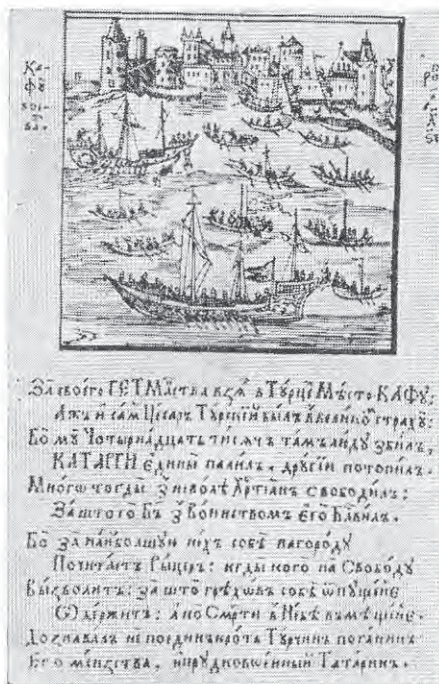 За своего ГЕТМАСТВА взѧ в Турцѣ Мѣсто КАФУ,
Ажъ и самъ Цесаръ Турскїй былъ в велико страху:
Бо му Чотырнадцать тисѧч тамъ люду збилъ,
КАТАРГИ єдины палилъ, другїи потопилъ.
Много тогды з неволѣ Хртїанъ свободилъ:
За што го Бъ з воинством его блвилъ.
Бо за наиболшую нехъ собѣ нагороду
Почитаєтъ Рыцеръ: кгды кого на Свободу
Вызволитъ: за што грѣховъ собѣ ѿпущене
Ѡдержитъ: а по Смрти в Нбѣ вмѣщене.
Дознавалъ не поединъкротъ Турчинъ поганинъ
Его менства, и прудковоенный Татаринъ.